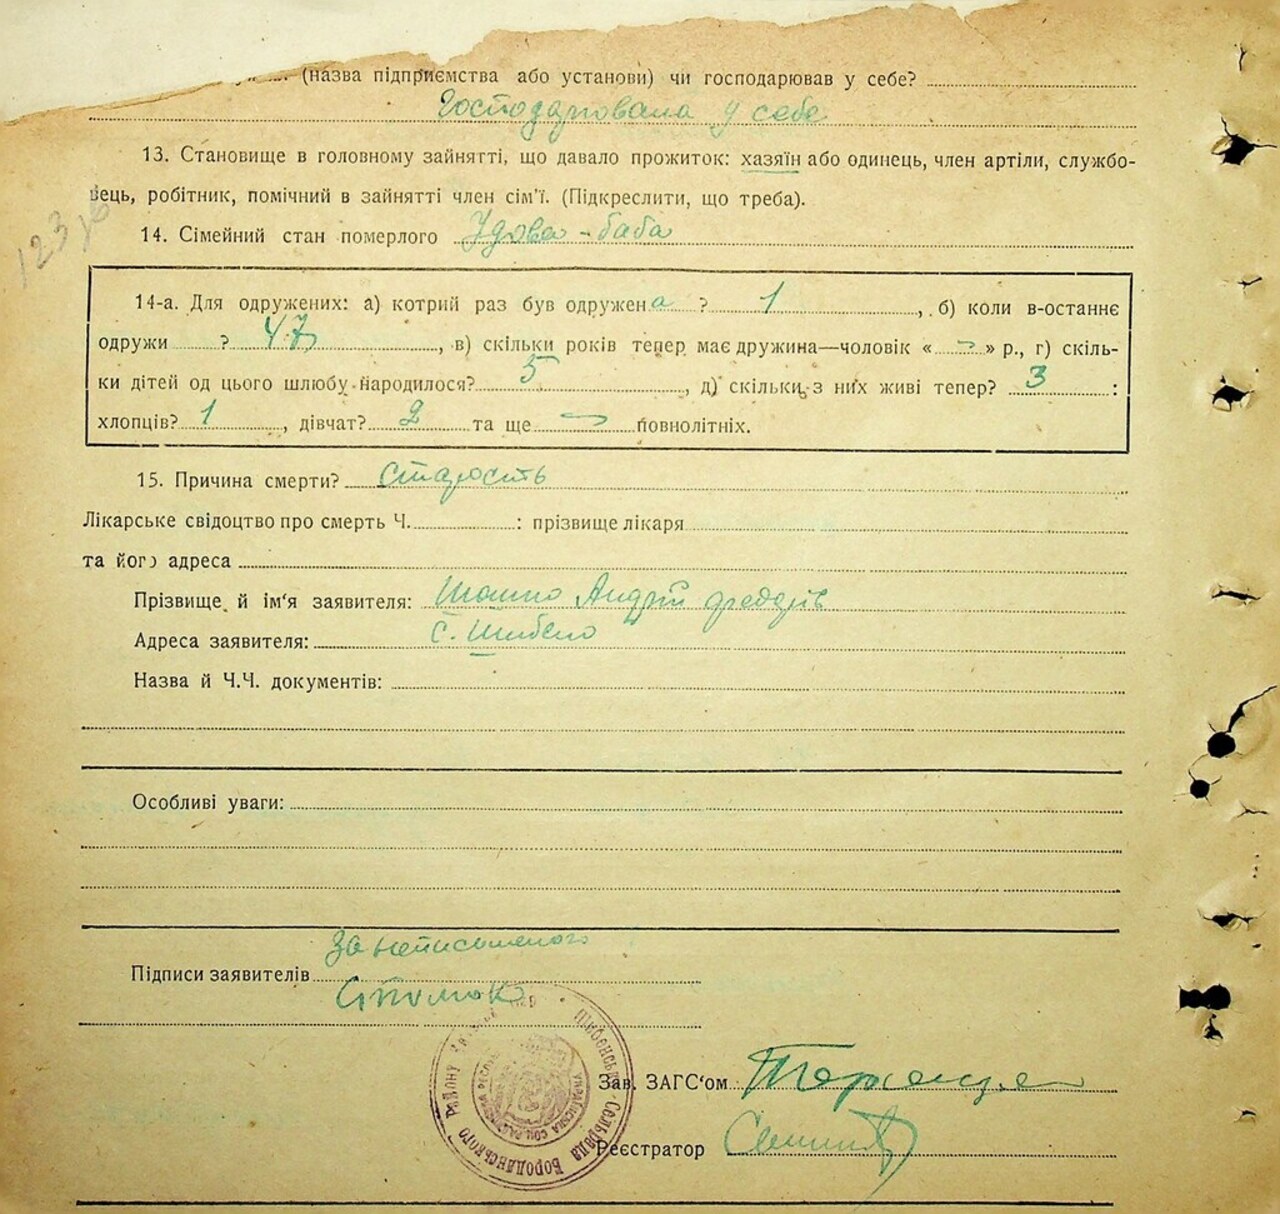 (назва підприємства або установи) чи господарював у себе?
Господарювала у себе
13. Становище в головному зайнятті, що давало прожиток: хазяїн або одинець, член артіли, службо-
вець, робітник, помічний в зайнятті член сім'ї. (Підкреслити, що треба).
14. Сімейний стан померлого Удова - баба
14-а. Для одружених: а) котрий раз був одружена ? 1 , б) коли в-останнє
одружи ? 47 , в) скільки років тепер має дружина—чоловік « — » р., г) скіль-
ки дітей од цього шлюбу народилося? 5 , д) скільки з них живі тепер? 3 :
хлопців? 1 , дівчат? 2 та ще — повнолітніх.
15. Причина смерти? Старость
Лікарське свідоцтво про смерть Ч. : прізвище лікаря
та його адреса
Прізвище й ім'я заявителя: Андрій
Адреса заявителя: с. Шибено
Назва й Ч.Ч. документів:
Особливі уваги:
За неписьменого
Підписи заявителів
Шибенська Сельрада Бородянського Району
Зав. ЗАГС'ом
Реєстратор
123